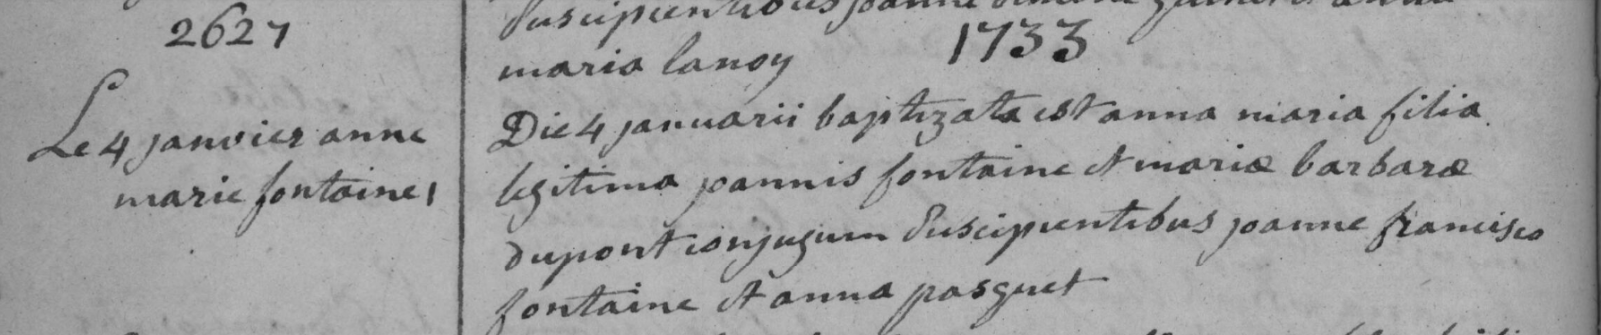 2627
Suscipientibus joanne
maria lanoy
1733
Le 4 janvier anne
marie fontaine 1
Die 4 januarii baptizata est anna maria filia
legitima joannis fontaine et mariæ barbaræ
dupont conjugum Suscipientibus joanne francisco
fontaine et anna pasquet